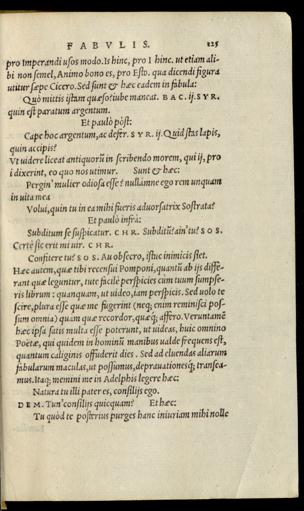 FABVLIS. 125
pro Imperandi usos modo. Is hinc, pro I hinc. ut etiam ali-
bi non semel, Animo bono es, pro Esto. qua dicendi figura
utitur sæpe Cicero. Sed sunt & hæc eadem in fabula:
Quò mittis istam quæso? iube maneat. BAC. ij. SYR.
quin est paratum argentum.
Et paulò pòst:
Cape hoc argentum, ac defer. SYR. ij. Quid stas lapis,
quin accipis?
Vt uidere liceat antiquorū in scribendo morem, qui ij, pro
i dixerint, eo quo nos utimur. Sunt & hæc:
Pergin' mulier odiosa esse? nullámne ego rem unquam
in uita mea
Volui, quin tu in ea mihi fueris aduorsatrix Sostrata?
Et paulò infrà:
Subditum se suspicatur. CHR. Subditū? ain' tu? SOS.
Certè sic erit mi uir. CHR.
Confitere tu? SOS. Au obsecro, istuc inimicis siet.
Hæc autem, quæ tibi recensui Pomponi, quantū ab ijs diffe-
rant quæ leguntur, tute facilè perspicies cum tuum sumpse-
ris librum: quanquam, ut uideo, iam perspicis. Sed uolo te
scire, plura esse quæ me fugerint (neq; enim reminisci pos-
sum omnia) quam quæ recordor, quæq; affero. Veruntamē
hæc ipsa satis multa esse poterunt, ut uideas, huic omnino
Poëtæ, qui quidem in hominū manibus ualde frequens est,
quantum caliginis offuderit dies. Sed ad eluendas aliarum
fabularum maculas, ut possumus, deprauationesq; transea-
mus. Itaq; memini me in Adelphis legere hæc:
Natura tu illi pater es, consilijs ego.
DEM. Tun' consilijs quicquam? Et hæc:
Tu quòd te posterius purges hanc iniuriam mihi nolle